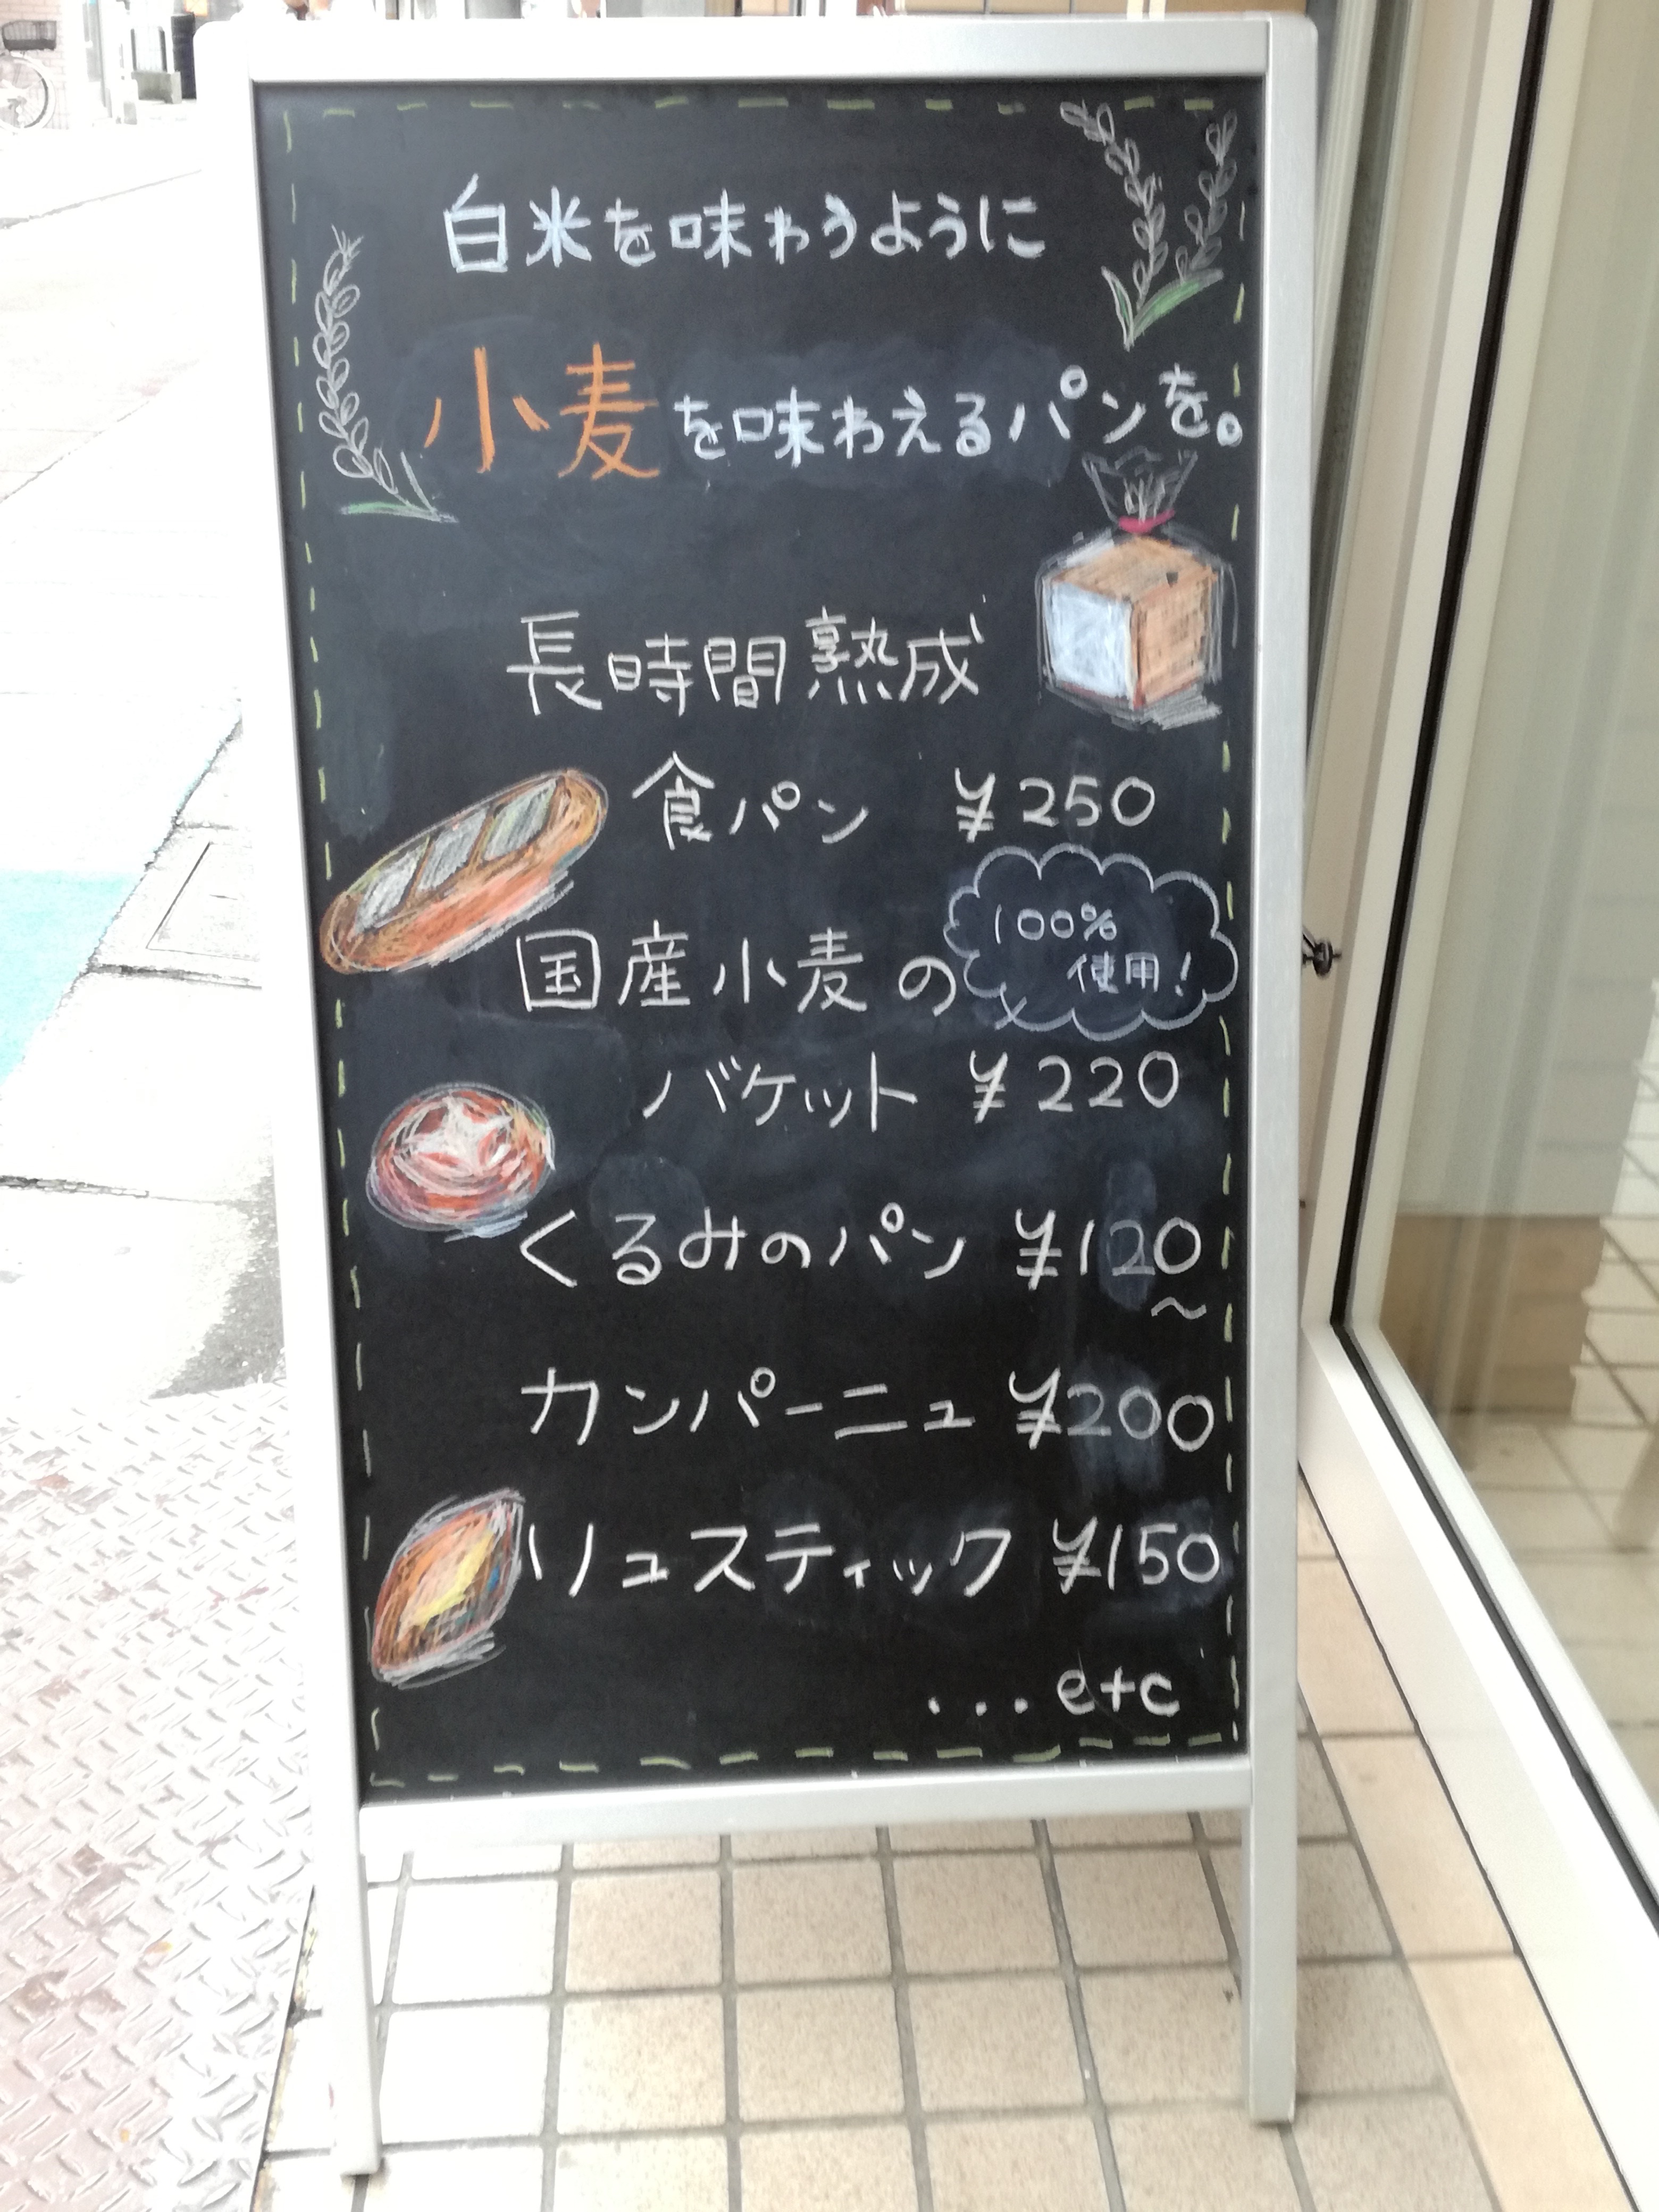 白米を味わうように
小麦を味わえるパンを。
長時間熟成
食パン ¥250
国産小麦の
100%
使用!
バケット ¥220
くるみのパン ¥120
～
カンパーニュ ¥200
リュスティック ¥150
...etc